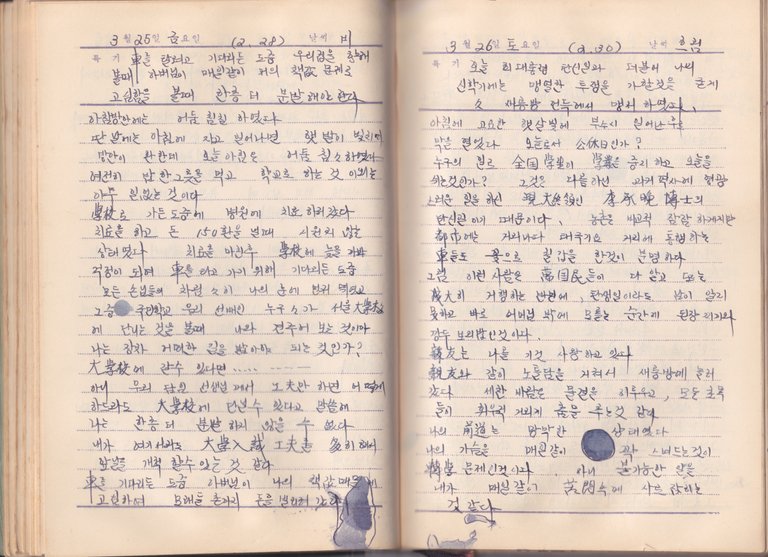 3월 25일 금요일 (2. 28) 날씨 비
특기 車를 탈려고 기다리는 도중 우리집을
볼때 아버님이 매일같이 저의 책값 문제로
고심함을 볼때 한층 더 분발해야 한다
아침방안에는 어둠 침침 하였다
딴 날에는 아침에 자고 일어나면 햇빛이 빛이며
방안이 환한데 오늘 아침은 어둠 침침하였다
여전히 밥 한그릇을 먹고 학교로 하는 것 이외는
아무 일없는 것이다
學校로 가는 도중에 병원에 치료하러 갔다
치료를 하고 돈 150환을 낼때 시원치 않는
상태였다 치료를 마친후 學校에 늦을가봐
걱정이 되여 車를 타고 가기 위해 기다리는 도중
모든 손님들의 차림 나의 눈에 띄였고
그중 우리 선배인 누구누가 서울大學校
에 다니는 것을 볼때 나와 견주어 보는 것이다
나는 장차 어떠한 길을 밟아야 되는 것인가?
大學校에 갈수 있다면 ......
아니 우리 담임 선생님께서 工夫만 하면 어떻게
하드라도 大學校에 다닐수 있다고 말씀에
나는 한층 더 분발 하지 않을 수 없다
내가 여기서라도 大學入試 工夫를 多히 해서
앞날을 개척 할수있는 것 같다
車를 기다리는 도중 아버님이 나의 책값때문에
고심하여 돈을
3월 26일 토요일 (2. 30) 날씨 흐림
특기 오늘 李대통령 탄신일과 더불어 나의
신학기에는 맹렬한 투쟁을 가할것을 굳게
새음방 언덕에서 맹서 하였다.
아침에 고요한 햇살빛에 부수시 일어난 후로
막은 열었다 오늘로서 公休日인가?
누구의 일로 全国学生이 學業을 중지 하고 오늘을
쉬는것인가? 그것은 다름아닌 과거 역사에 영광
스러운 일을 하신 現 大統領인 李承晩 博士의
탄신일 이기 때문이다. 농촌은 비교적 잠잠 하게지만
都市에는 거리마다 태극기요 거리에 통행하는
車들도 꽃으로 칠갑을 한것이 분명하다
그럼 이런 사람은 萬国民들이 다 알고 또는
盛大히 거행하는 반면에, 탄생일이라도 남이 알지
못하고 바로 어버님 밖에 모를는 순간에 된장 찌개와
깡보리밥인것이다.
親友는 나를 지것 사랑하고 있다
親友와 같이 노른담을 거쳐서 새음방에 놀러
갔다 세찬 바람은 물결을 이루우고, 모든 초목
들이 휘우적 거리게 춤을 추는것 같다
나의 前途는 망막한 상태였다
나의 가슴을 매일같이 꽉 스며드는것이
學 문제인것이다. 아니 불가능한 일을
내가 매일같이 苦悶속에 사로잡히는
것 같다